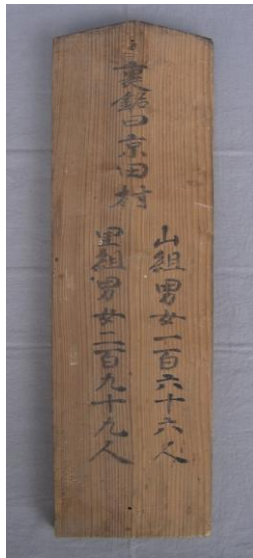 裏銘曰京田村
山組男女一百六十六人
里組男女二百九十九人